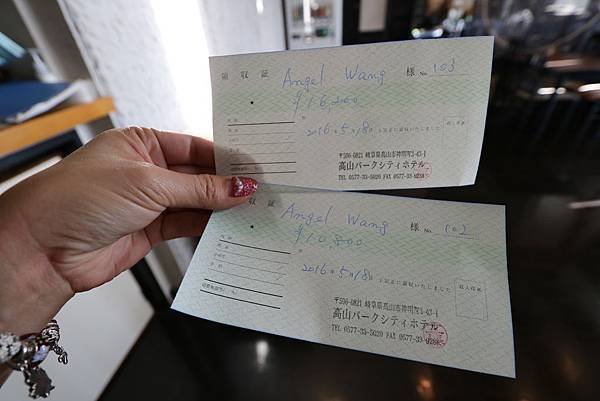 領 収 証 Angel Wang 様 No. 103
¥16,200
2016年5月18日 上記正に領収いたしました
収入印紙
〒506-0821 岐阜県高山市神明町3-43-1
高山パークシティホテル
TEL 0577-33-5020 FAX 0577-33-9288
収 証 Angel Wang 様 No. 102
¥10,800
2016年5月18日 上記正に領収いたしました
収入印紙
〒506-0821 岐阜県高山市神明町3-43-1
高山パークシティホテル
TEL 0577-33-5020 FAX 0577-33-9288